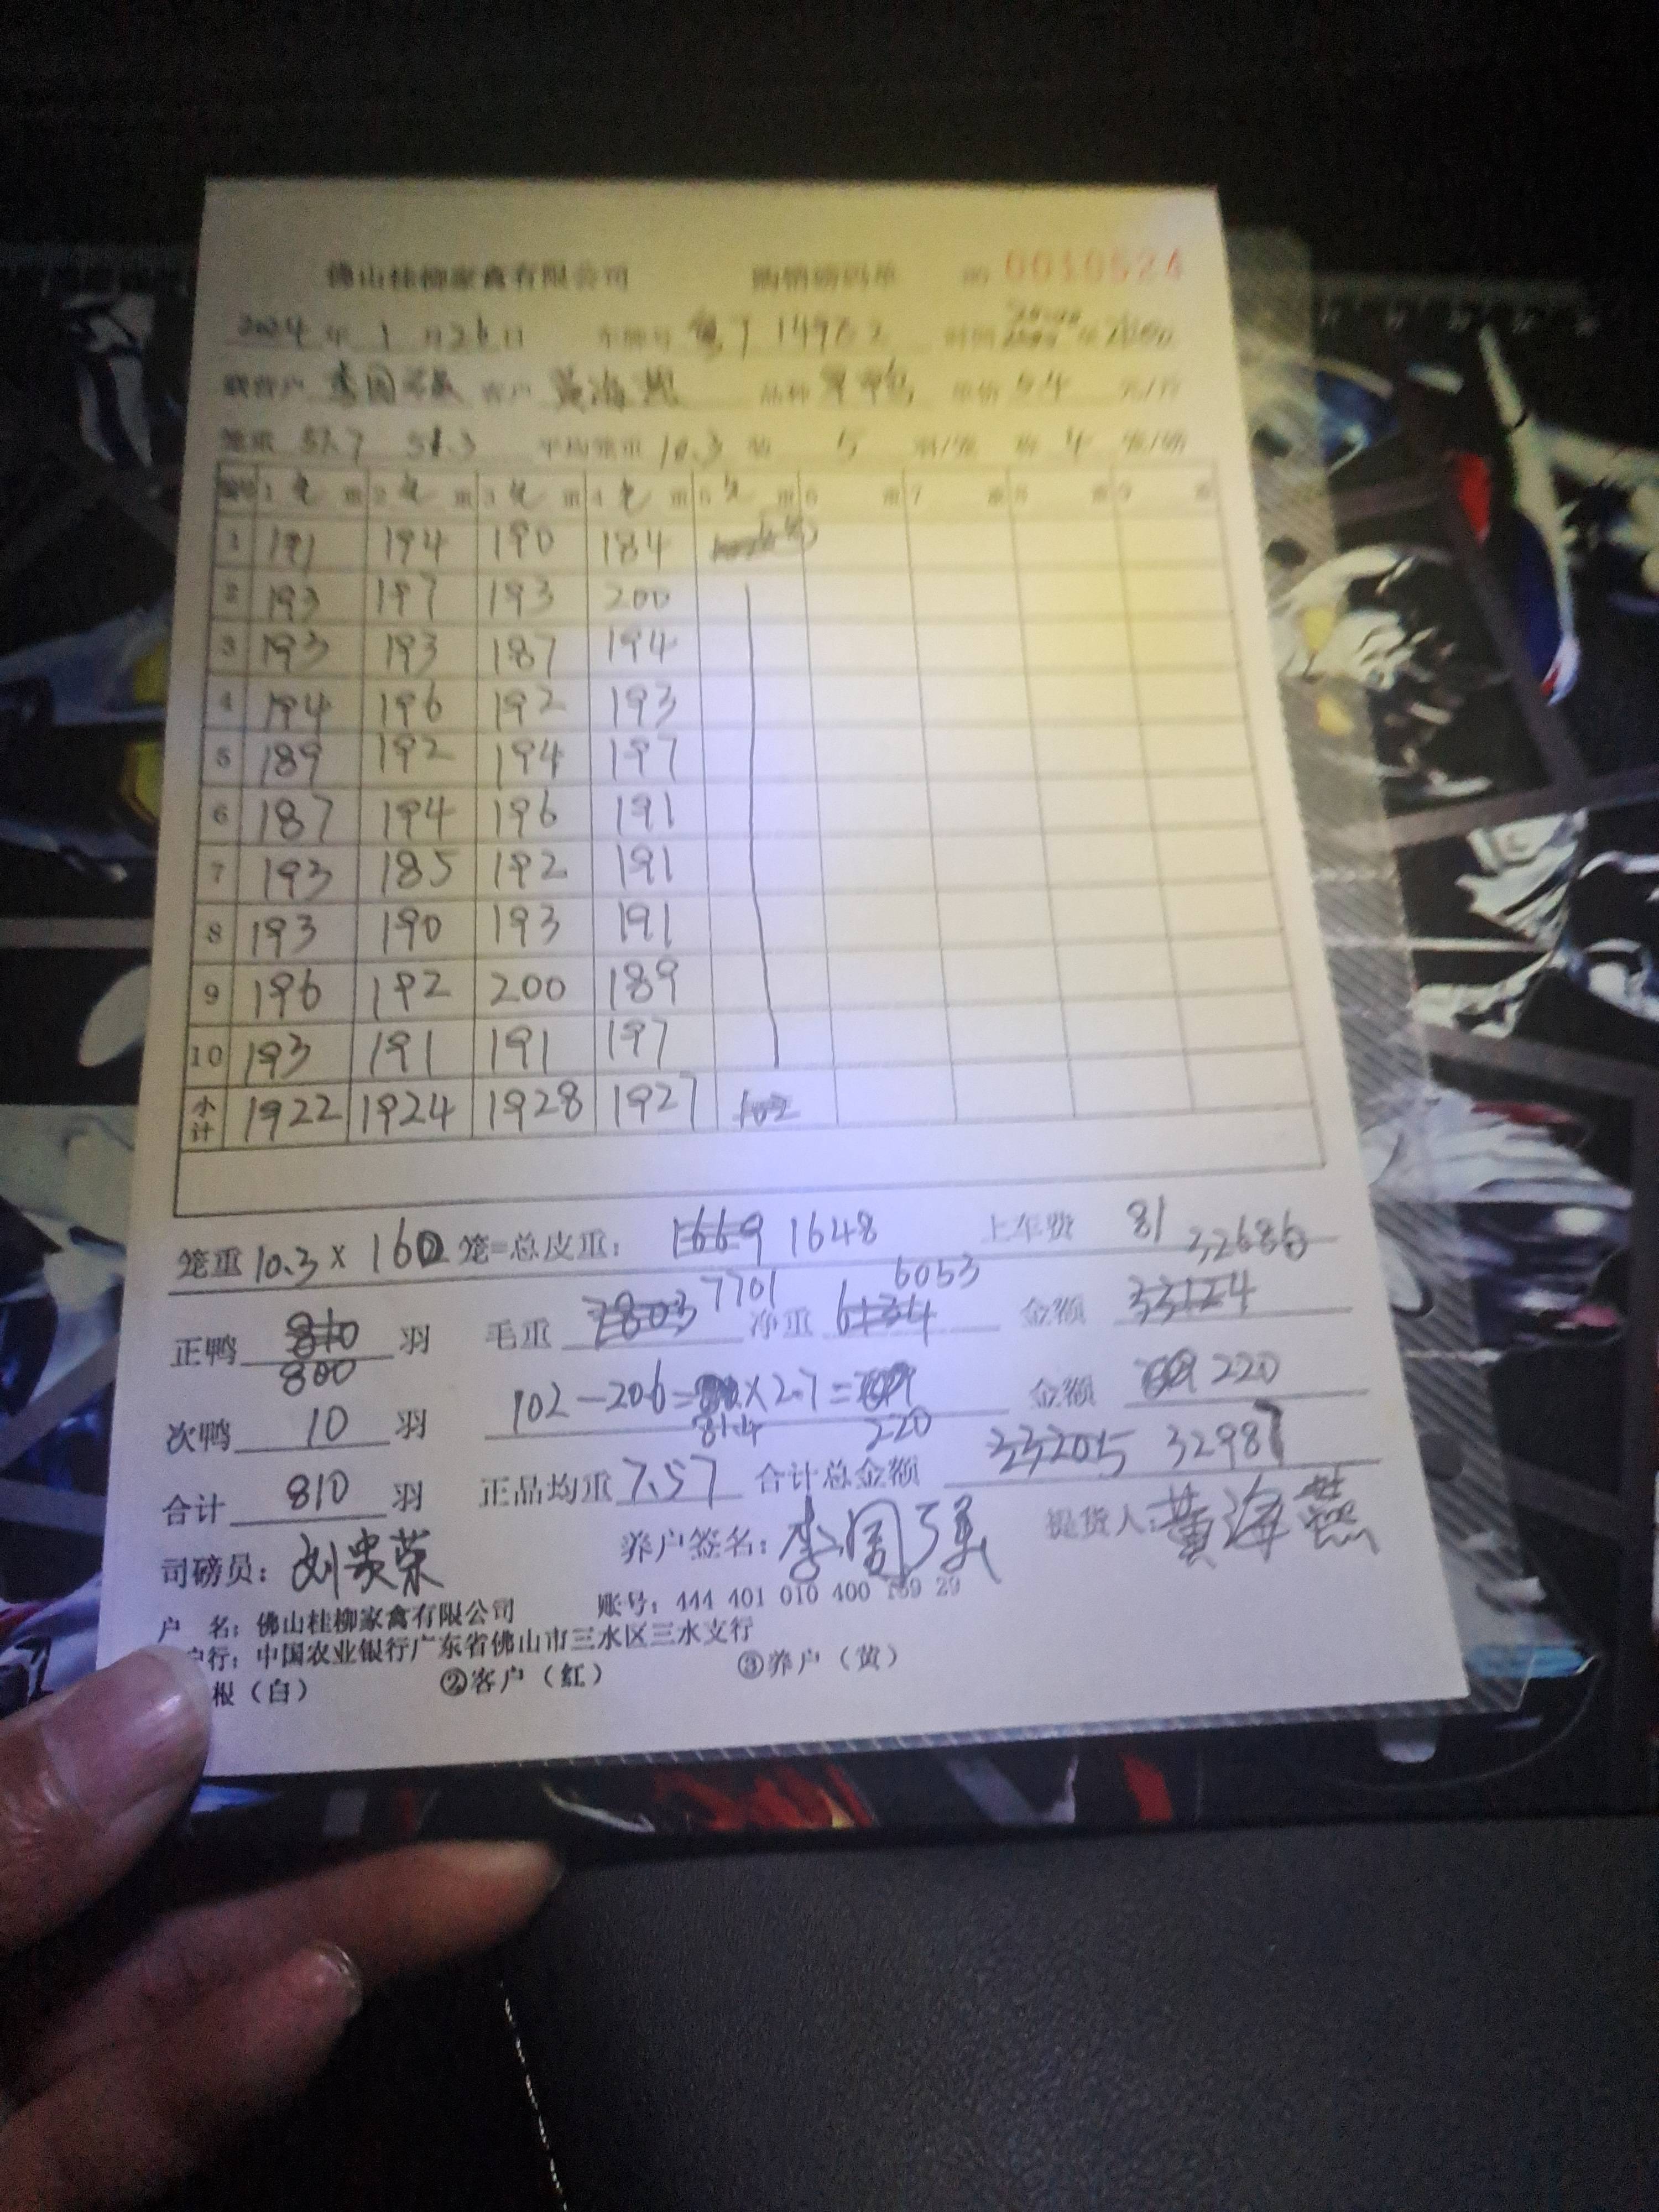 佛山桂柳家禽有限公司 购销磅码单 0010524
2024年1月26日 车牌号 时间
客户 黄海燕 品种 单价 5.4 元/斤
笼重 51.7 51.3 平均笼重 10.3 装 5 羽/笼 4 笼/磅
1 毛重 2 毛重 3 毛重 4 毛重 5 毛重 6 重 7 重 8 重 9 重
1 191 194 190 184
2 193 197 193 200
3 193 193 187 194
4 194 196 192 193
5 189 192 194 197
6 187 194 196 191
7 193 185 192 191
8 193 190 193 191
9 196 192 200 189
10 193 191 191 197
小计 1922 1924 1928 1927 102
笼重 10.3 × 160 笼=总皮重: 1669 1648 上车费 81
32686
7701 6053
正鸭 810 羽 毛重 7803 净重 6134 金额 33124
800
次鸭 10 羽 102-20.6= ×2.7= 金额 220
81.4 220
合计 810 羽 正品均重 7.57 合计总金额 33205 32987
司磅员: 养户签名: 李国强 提货人: 黄海燕
户 名: 佛山桂柳家禽有限公司 账号: 444 401 010 400 169 29
户行: 中国农业银行广东省佛山市三水区三水支行
根(白) ②客户(红) ③养户(黄)